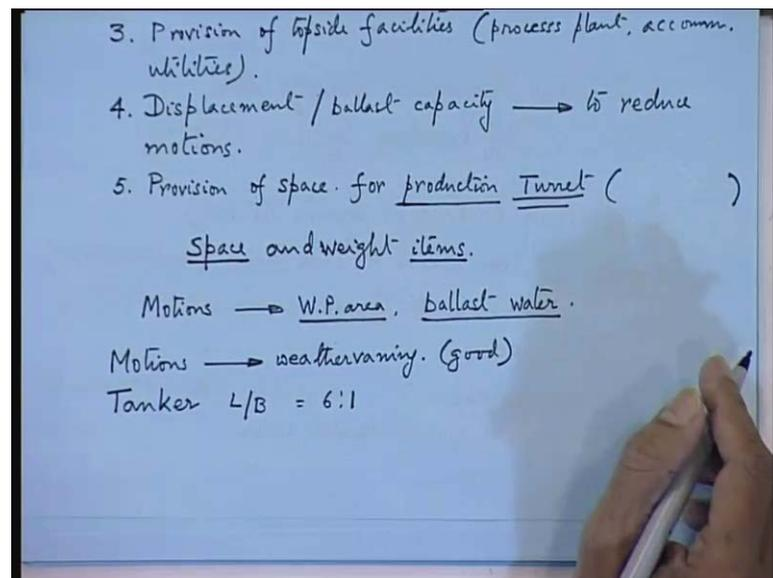 3. Provision of topside facilities (processs plant, accomm.
utilities).
4. Displacement / ballast capacity → to reduce
motions.
5. Provision of space. for production Turret (            )
Space and weight items.
Motions → W.P. area, ballast water.
Motions → weathervaning. (good)
Tanker L/B = 6:1